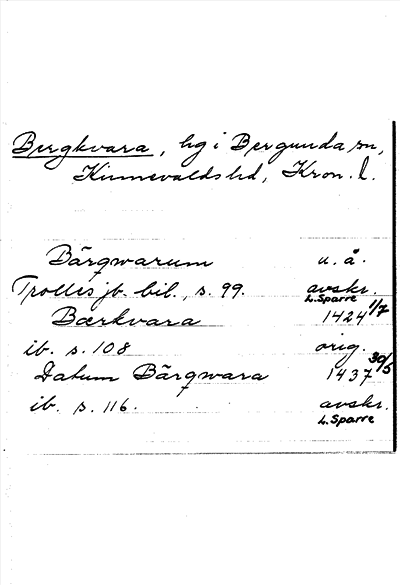 Bergkvara, hg i Bergunda sn,
Kinnevalds hd, Kron. l.
Bärgwarum u. å.
Trolles jb. bil., s. 99. avskr.
L. Sparre
Bærkvara 1424 1/7
ib. s. 108 orig.
Datum Bärqwara 1437 30/5
ib. s. 116. avskr.
L. Sparre